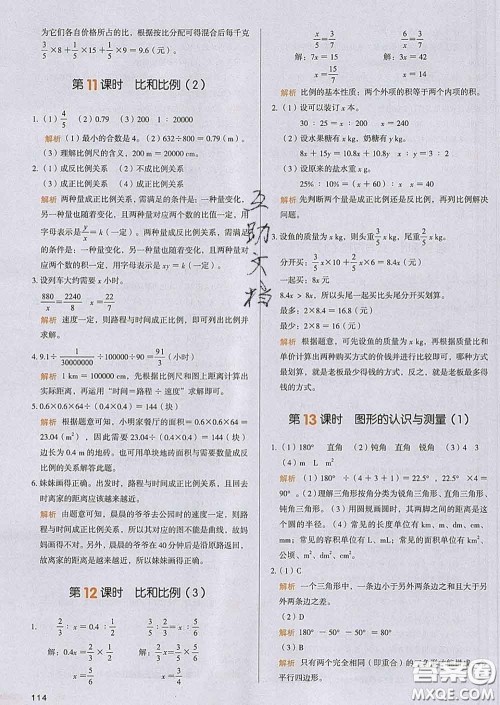 为它们各自价格所占的比，根据按比分配可得混合后每千克
3/5×8+1/5×15+1/5×9=9.6（元）。
第11课时 比和比例（2）
1.（1）4/5 （2）0.79 （3）1：20000
解析 （1）最小的合数是4。（2）632÷800=0.79。
（3）理解比例尺的含义，200 m=20000 cm。
2.（1）成反比例关系 （2）不成比例关系
（3）成正比例关系 （4）成正比例关系
解析 两种量成正比例关系，需满足的条件是：一种量变化，
另一种量也随着变化，且这两个量相对应的两个数的比值一定，用
字母表示是y/x=k（一定）。两种量成反比例关系，需满足的
条件是：一种量变化，另一种量也随着变化，且这两种量相对
应两个数的积一定，用字母表示是xy=k（一定）。
3.设列车大约需要x小时。
880/8=2240/x x=224/11
解析 速度一定，则路程与时间成正比例，即可列比例解出
求解。
4. 9.1÷1/10000000÷100000÷90=91/3（小时）
解析 1 km=100000 cm。先根据比例尺和图上距离计算出
实际距离，再运用“时间=路程÷速度”求解即可。
5. 0.6×0.6×64÷（0.4×0.4）=144（块）
解析 根据题意可知，小明家餐厅的面积为0.6×0.6×64=
23.04（m²），因此需要23.04÷（0.4×0.4）=144（块）
边长为0.4 m的地砖。也可以根据单块地砖面积与数量成反
比例的关系解答此题。
6.妹妹画得正确。因为爷爷出发时，路程与时间成正比例且去
时离家的距离应该越来越远。
解析 由题意可知，晨晨的爷爷去公园时的速度一定，则
路程与时间成正比例关系。所以其对应的图不能是曲线，故妈
妈画得不对。另外，晨晨的爷爷在40分钟后是沿原路返回，
故离家的距离是越来越近，所以妹妹画得正确。
第12课时 比和比例（3）
1. 2/3：x=0.4：1/2 2/3：x=1/2：0.4
解：0.4x=2/3×1/2 解：1/2x=2/3×0.4
x=5/6 x=8/15
114
x/5=3/7 x/3=5/7
解：7x=15 解：7x=15
x=15/7 x=15/7
解析 比例的基本性质：两个外项的积等于两个内项的积。
2.（1）设可以装订x本。
30：25=x：200 x=240
（2）设水果糖有x kg，奶糖有y kg。
8x+15y=10.8（x+y） x：y=3：2
（3）设原来的盐水有x kg。
25%：10%=（x+60）：x x=40
解析 先判断两个量成正比例还是反比例，再列比例解决
问题。
3.设鱼的质量为x kg，则头尾重2/5x kg，鱼身重3/5x kg。
分开买：3/5x×10+2/5x×6=8.4x（元）
一起买：8x元
8.4x＞8x，所以比头尾一起买比头尾分开买划算。
最少：2×8=16（元）
最多：2×8.4=16.8（元）
解析 根据题意，可知无论怎样购买，根据质量占比
和单价计算出两种模式下总价即可作出判断。两种购买模式
下，总钱数最多，就是老板最多得钱的方式；总钱数最少，就是老板最少得
钱的方式。
第13课时 图形的认识与测量（1）
1.（1）180° 直角 （2）钝角 直角 锐角
（3）圆规 （4）cm t m²
解析 （1）180°÷（4+3+1）=22.5° 22.5°×4
=90°。（2）理解三角形按角分类有锐角三角形、直角三角
形、钝角三角形。（3）用圆规画圆时，其两脚之间的距离就是这
个圆的半径。（4）常见的长度单位有km、m、dm、cm、
mm。常见的质量单位有t、kg、g。常见的面积单位有km²、
公顷、m²、dm²、cm²。
2.（1）C
解析 一个三角形中，一条边小于另外两条边之和且大于
另外两条边之差。
（2）D
解析 180°-50°-50°=80°
（3）B
解析 只有两个完全相同（即重合）的
平行四边形。
互助文档
答案圈
MXQE.COM